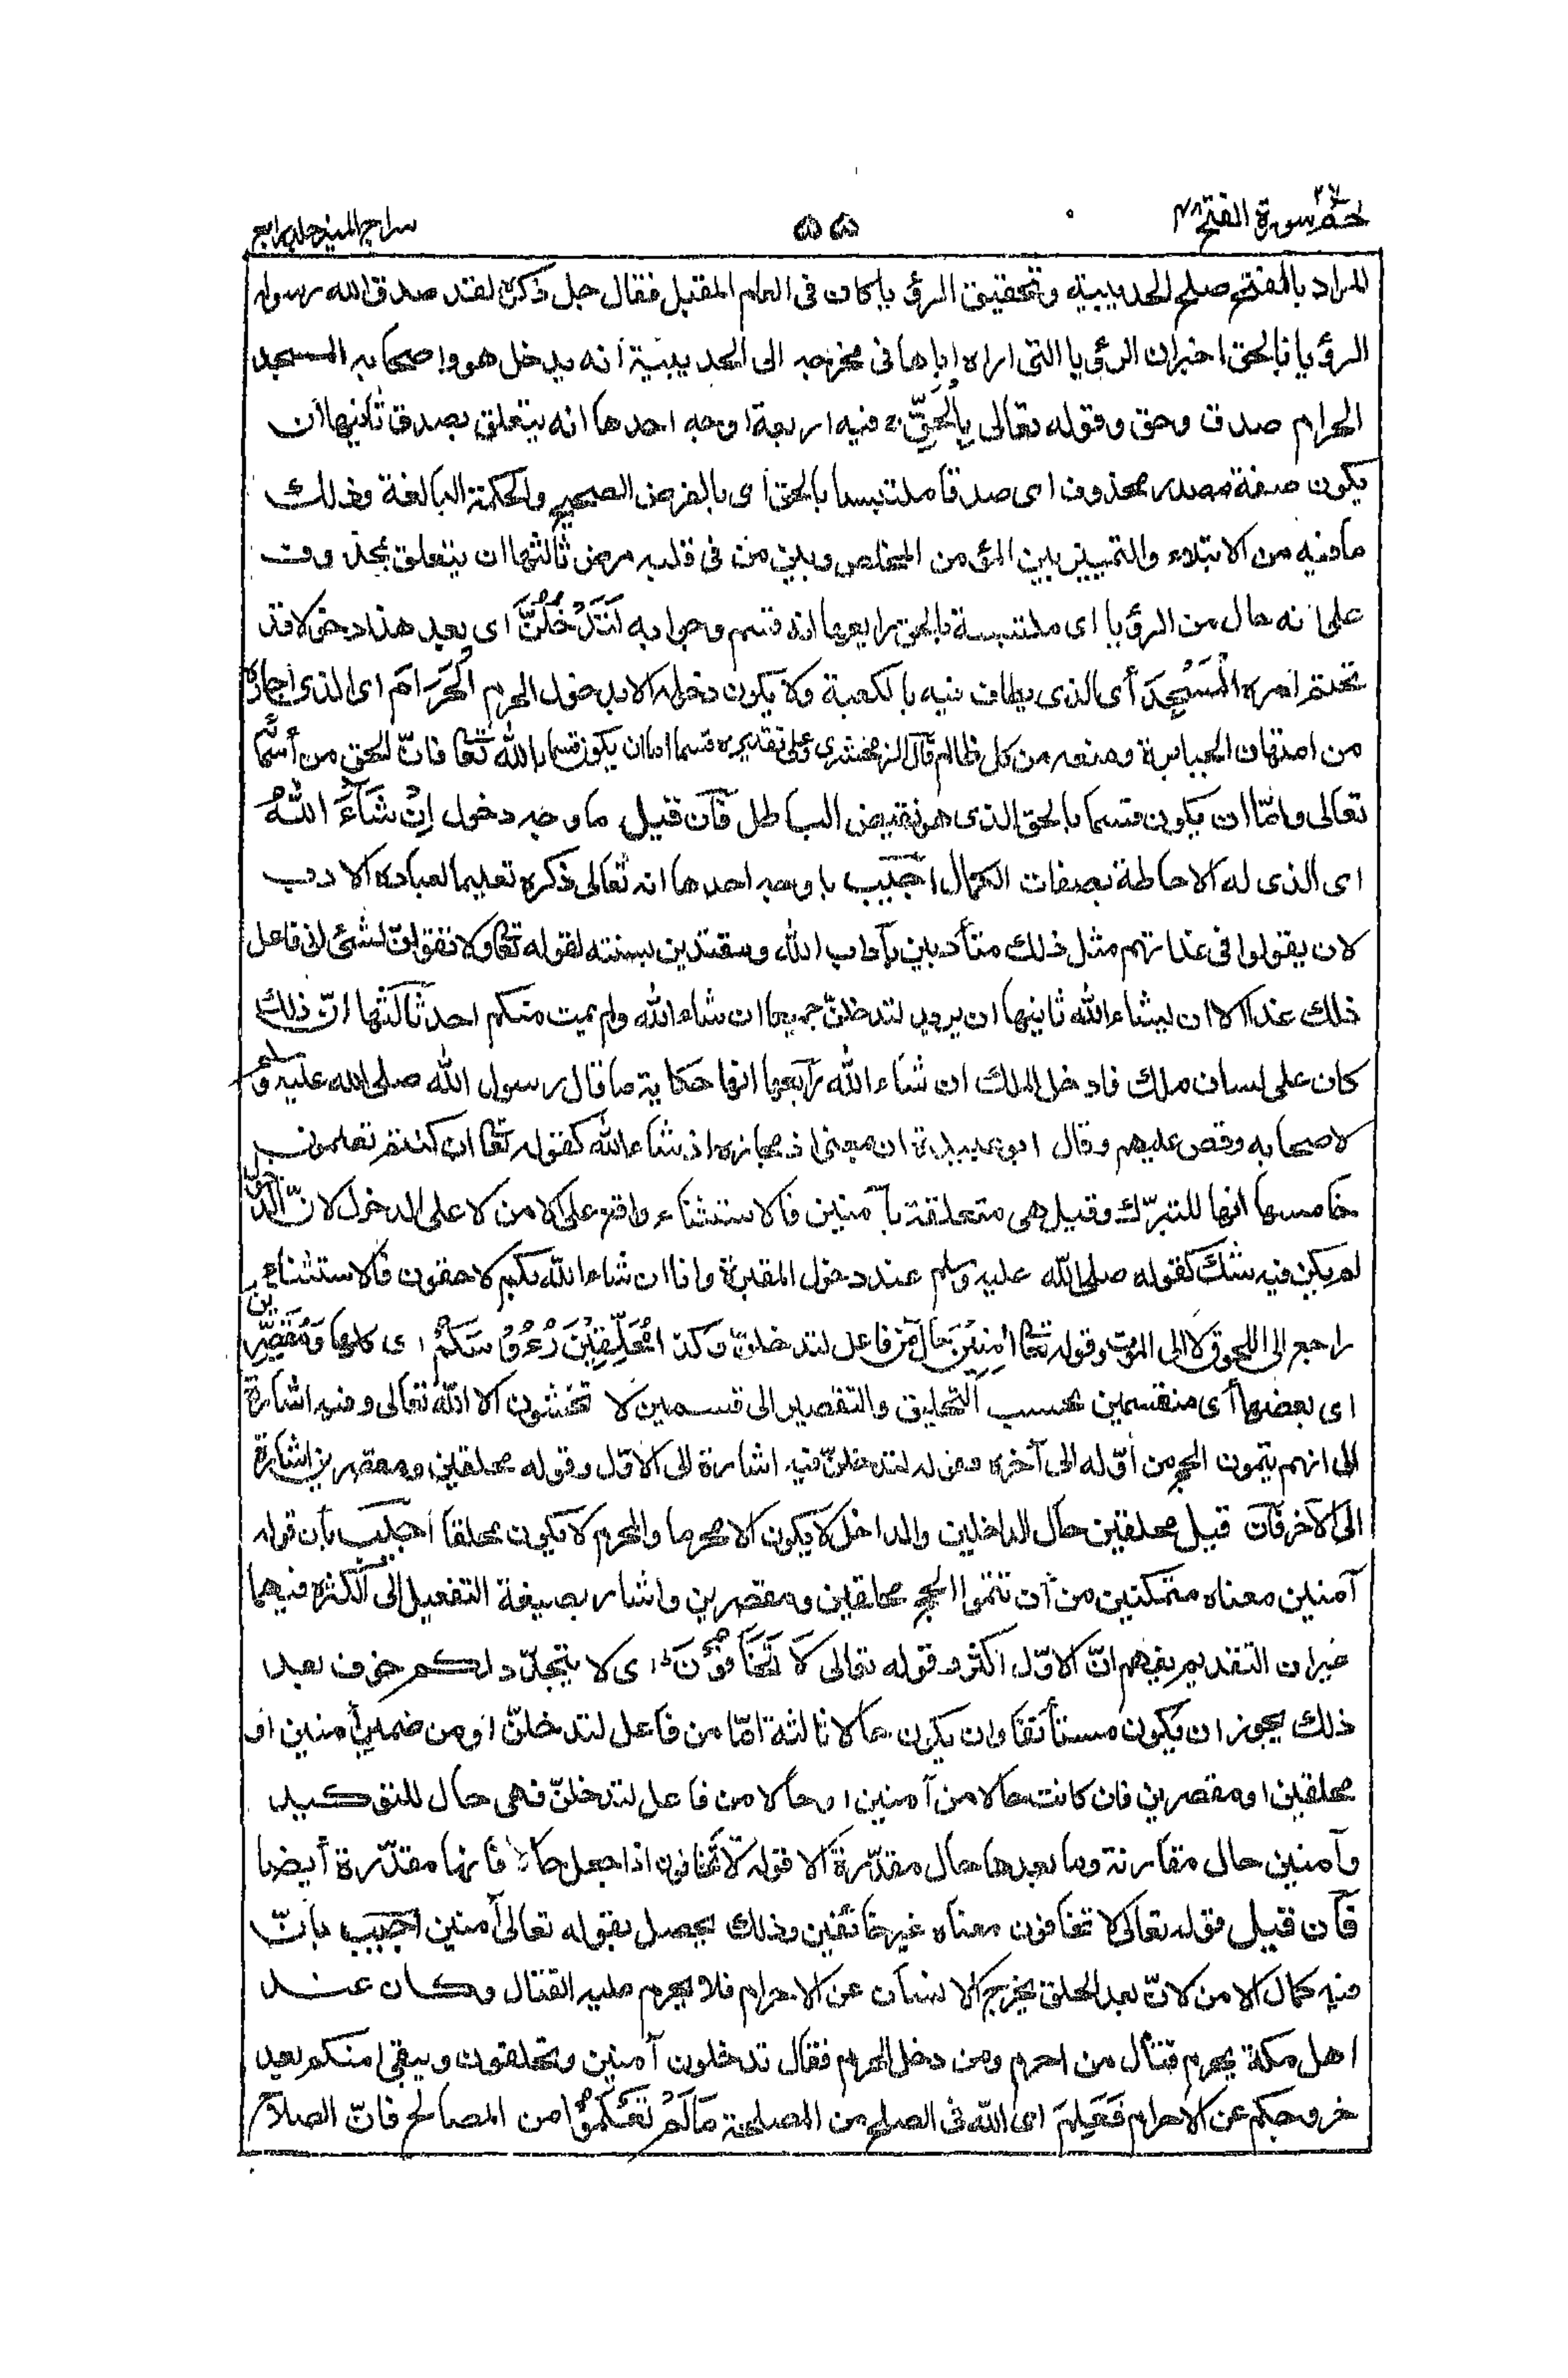 حٰمٓ ٢٦ سورة الفتح ٤٨
٥٥
سراج المنير جلد رابع
المراد بالفتح صلح الحديبية وتحقيق الرؤيا كان فى العام المقبل فقال جل ذكره لقد صدق الله رسوله
الرؤيا بالحق اخبر ان الرؤيا التى اراه اياها فى مخرجه الى الحديبية أنه يدخل هو واصحابه المسجد
الحرام صدق وحق وقوله تعالى بِالْحَقِّ فيه اربعة اوجه احدها انه يتعلق بصدق ثانيها أن
يكون صفة مصدر محذوف اى صدقا ملتبسا بالحق أى بالغرض الصحيح والحكمة البالغة وذلك
مافيه من الابتلاء والتمييز بين المؤمن المخلص وبين من فى قلبه مرض ثالثها ان يتعلق بمحذوف
على أنه حال من الرؤيا اى ملتبسة بالحق رابعها انه قسم وجوابه لَتَدْخُلُنَّ اى بعد هذا دخولا قد
تحتم امره الْمَسْجِدَ أى الذى يطاف فيه بالكعبة ولا يكون دخوله الا بدخول الحرم الْحَرَامَ اى الذى اجاره
من امتهان الجبابرة ومنعه من كل ظالم قال الزمخشرى وعلى تقديره قسما اما ان يكون قسما بالله تعا فانّ الحق من أسمائه
تعالى وامّا ان يكون قسما بالحق الذى هو نقيض الباطل فآن قيل ما وجه دخول اِنْ شَآءَ اللّٰهُ
اى الذى له الاحاطة بصفات الكمال اجيب باوجه احدها انه تعالى ذكره تعليما لعباده الادب
لان يقولوا فى عداتهم مثل ذلك متأدبين بآداب الله ومقتدين بسنته لقوله تعا ولا تقولنّ لشئ انى فاعل
ذلك غدا الا ان يشاء الله ثانيها ان يريد لتدخلنّ جميعا ان شاء الله ولم يمت منكم احد ثالثها انّ ذلك
كان على لسان ملك فادخل الملك ان شاء الله رابعها انها حكاية ما قال رسول الله صلى الله عليه وسلم
لاصحابه وقص عليهم وقال ابو عبيدة ان معنى اذ مجازه اذ شاء الله كقوله تعا ان كنتم تعلمون
خامسها انها للتبرّك وقيل هى متعلقة بآمنين فالاستثناء واقع على الامن لا على الدخول لانّ الدخول
لم يكن فيه شكّ كقوله صلى الله عليه وسلم عند دخول المقبرة وانا ان شاء الله بكم لاحقون فالاستثناء
راجع الى اللحوق لا الى الموت وقوله تعا اٰمِنِيْنَ حال من فاعل لتدخلنّ وكذا مُحَلِّقِيْنَ رُءُوْسَكُمْ اى كلها وَمُقَصِّرِيْنَ
اى بعضها أى منقسمين بحسب التحليق والتقصير الى قسمين لا تخشون الا الله تعالى وفيه اشارة
الى انهم يتمون الحج من أوّله الى آخره فقوله لتدخلنّ فيه اشارة الى الاوّل وقوله محلقين ومقصرين اشارة
الى الآخر فآن قيل محلقين حال الداخلين والداخل لا يكون الا محرما والمحرم لا يكون محلقا اجيب بأن قوله
آمنين معناه متمكنين من أن تتموا الحج محلقين ومقصرين واشار بصيغة التفعيل الى الكثرة فيهما
غير ان التقديم يفهم انّ الاوّل اكثر وقوله تعالى لَا تَخَافُوْنَ اى لا يتجدّد لكم خوف بعد
ذلك يجوز ان يكون مستأنفا وان يكون حالا ثالثة امّا من فاعل لتدخلنّ او من ضمير آمنين او
محلقين او مقصرين فان كانت حالا من آمنين او حالا من فاعل لتدخلنّ فهى حال للتوكيد
وآمنين حال مقارنة وما بعدها حال مقدّرة الا قوله لا تخافون اذا جعل حالا فانها مقدّرة أيضا
فآن قيل قوله تعالى لا تخافون معناه غير خائفين وذلك يحصل بقوله تعالى آمنين اجيب بانّ
فيه كمال الامن لانّ بعد الحلق يخرج الانسان عن الاحرام فلا يحرم عليه القتال وكان عند
اهل مكة يحرم قتال من احرم ومن دخل الحرم فقال تدخلون آمنين وتحلقون ويبقى امنكم بعد
خروجكم عن الاحرام فَعَلِمَ اى الله فى الصلح من المصلحة مَا لَمْ تَعْلَمُوْا من المصالح فانّ الصلاح